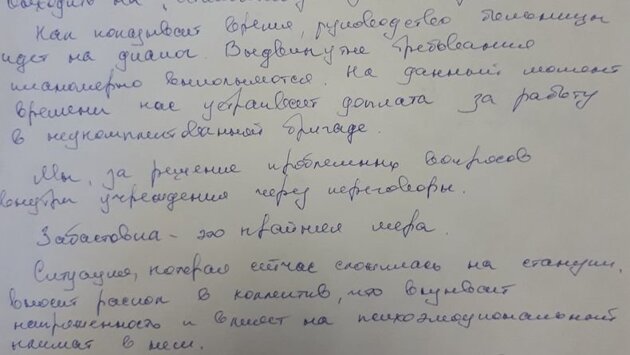 выходить на
Как показывает время, руководство больницы
идет на диалог. Выдвинутые требования
планомерно выполняются. На данный момент
времени нас устраивает доплата за работу
в неукомплектованной бригаде.
Мы, за решение проблемных вопросов
внутри учреждения через переговоры.
Забастовка - это крайняя мера.
Ситуация, которая сейчас сложилась на станции,
вносит раскол в коллектив, что вызывает
напряженность и влияет на психоэмоциональный
климат в нем.